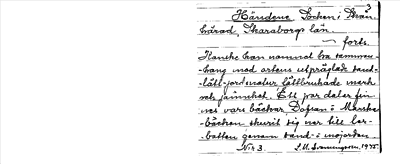 3
Händene Socken i Skån-
härad, Skaraborgs län
— forts.
Kanske kan namnet ha samman-
hang med ortens utpräglade sand-
lätt-jordmatur lättbrukade mark
och jämnhet. Ett par dalar fin-
nes vars bäckar, Dofsan i Marske-
bäcken skurit sig ner till ler-
botten genom sand- i mojorden
N:r 3. L.M. Svenungsson, 1975